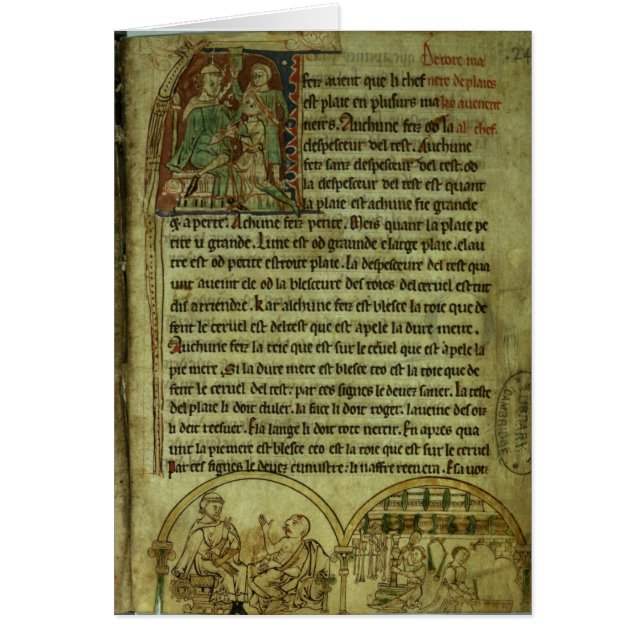 De tote ma
24
feiz avient que li chef nere de plaies
est plaie en plusurs ma ke avenent
neirs. Auchune feiz od la al chef.
despesceur del test. Auchune
feiz sanz despesceur del test. od
la despesceur del test est quant
la plaie est achune fie grande
& aperte. Achune feiz petite. Meis quant la plaie pe
tite u grande. Lune est od graunde e large plaie. e lau
tre est od petite estroite plaie. La despesceure del test qua
unt avient ele od la blesceure des toies del cervel est tut
dis a rriendre. Kar alchune feiz est blesce la toie que de
fent le cervel est del test que est apele la dure mere.
Auchune feiz la teie que est sur le cervel que est apele la
pie mere. Si la dure mere est blesce ceo est la toie que de
fent le cervel del test. par ces signes le devez saver. La teste
del plaie li doit duler. la face li doit roger.
li deit E la lange li doit tote nercir. En apres qua
unt la piemere est blesce ceo est la toie que est sur le cervel
Par ces signes le devez cunustre: li naffre E sa voiz
LIBRARY
CAMBRIDGE